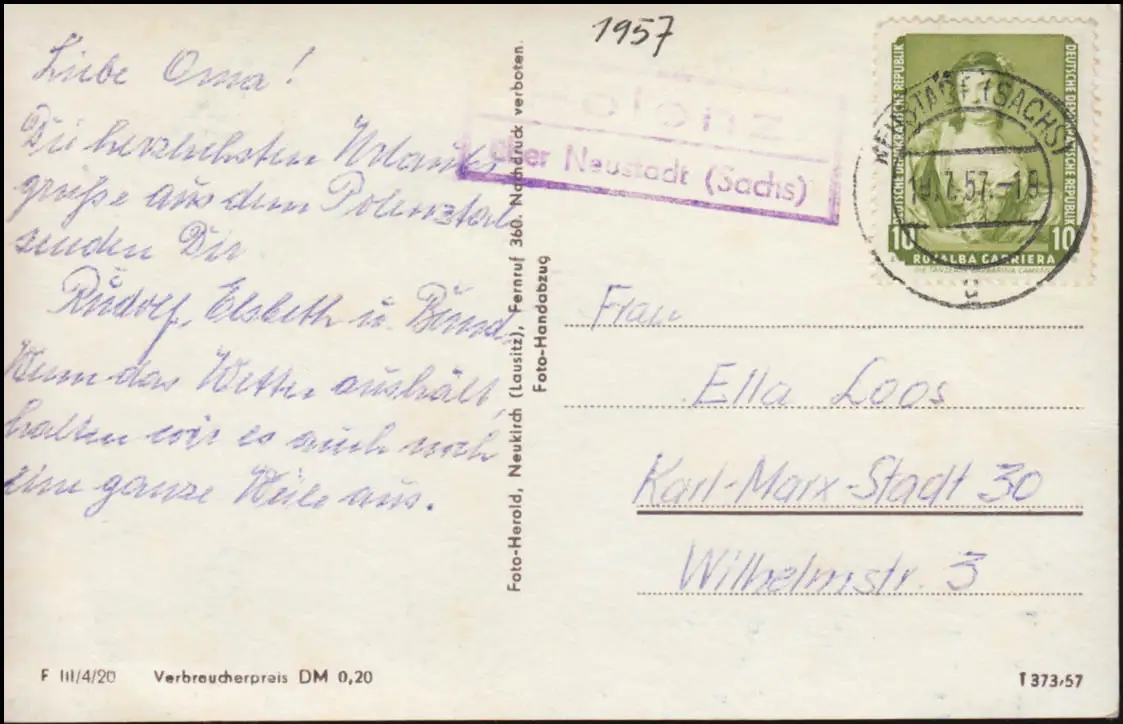 1957
Liebe Oma!
Die herzlichsten Urlaubs
grüße aus dem Polenztal
senden Dir
Rudolf, Elsbeth u. Bernd.
Wenn das Wetter aushält,
halten wir es auch noch
eine ganze Weile aus.
F III/4/20 Verbraucherpreis DM 0,20
Foto-Herold, Neukirch (Lausitz), Fernruf 360. Nachdruck verboten.
Foto-Handabzug
Polenz
über Neustadt (Sachs)
DEUTSCHE DEMOKRATISCHE REPUBLIK
DEUTSCHE DEMOKRATISCHE REPUBLIK
10 10
ROSALBA CARRIERA
DIE TÄNZERIN BARBARINA CAMPANI
NEUSTADT (SACHS)
7.57.-18
Frau
Ella Loos
Karl-Marx-Stadt 30
Wilhelmstr. 3
T 373/57